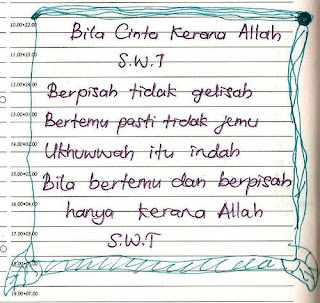 11.00+22.00
Bila Cinta Kerana Allah
S.W.T
12.00+23.00
Berpisah tidak gelisah
13.00+24.00
Bertemu pasti tidak jemu
14.00+01.00
Ukhuwwah itu indah
15.00+02.00
Bila bertemu dan berpisah
16.00+04.00
hanya kerana Allah
17.00+05.00
S.W.T
19.00+07.00